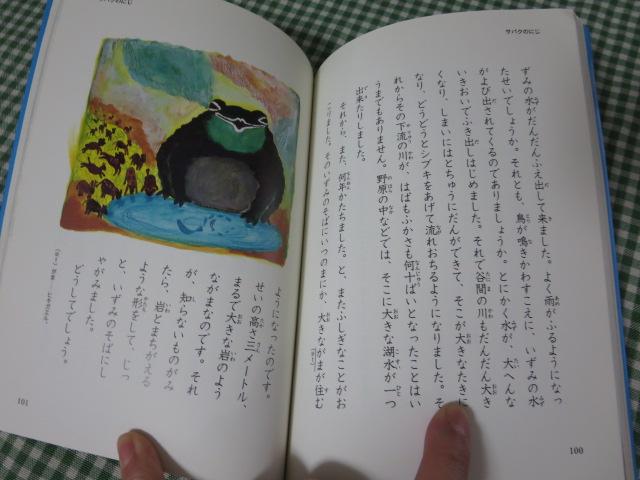 サバクのにじ
ずみの水がだんだんふえ出して来ました。よく雨がふるようになっ
たせいでしょうか、それとも、鳥が鳴きかわすこえに、いずみの水
がよび出されてくるのでありましょうか。とにかく水が、大へんな
いきおいでふき出しはじめました。それで谷間の川もだんだん大き
くなり、しまいにはとちゅうにだんができて、そこが大きなたきに
なり、どうどうとシブキをあげて流れおちるようになりました。そ
れからその下流の川が、はばもふかさも何十ばいとなったことはい
うまでもありません。野原の中などでは、そこに大きな湖水が一つ
出来たりしました。
それから、また、何年かたちました。と、またふしぎなことがお
こりました。そのいずみのそばにいつのまにか、大きながまが住む
100
サバクのにじ
ようになったのです。
せいの高さ三メートル、
まるで大きな岩のよう
ながまなのです。それ
が、知らないものがみ
たら、岩とまちがえる
ような形をして、じっ
と、いずみのそばにし
ゃがみました。
どうしてでしょう。
101